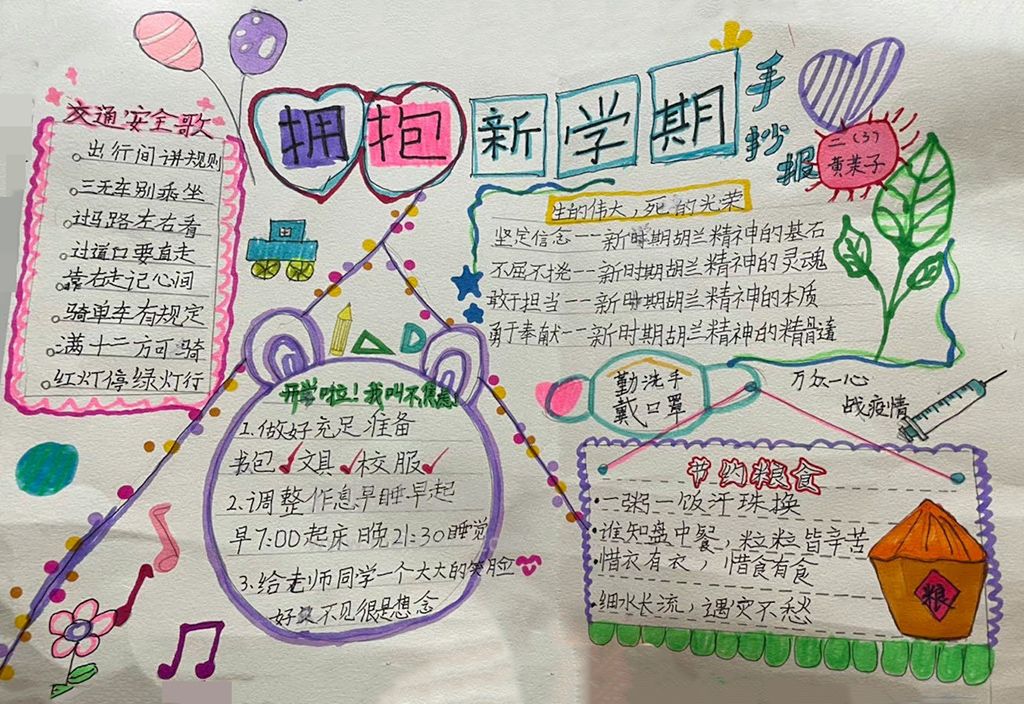 拥抱新学期
手抄报
二(3)
黄茉子
交通安全歌
出行间讲规则
三无车别乘坐
过马路左右看
过道口要直走
靠右走记心间
骑单车有规定
满十二方可骑
红灯停绿灯行
生的伟大,死的光荣
坚定信念——新时期胡兰精神的基石
不屈不挠——新时期胡兰精神的灵魂
敢于担当——新时期胡兰精神的本质
勇于奉献——新时期胡兰精神的精髓
开学啦!我叫不焦虑!
1.做好充足准备
书包✓文具✓校服✓
2.调整作息早睡早起
早7:00起床晚21:30睡觉
3.给老师同学一个大大的笑脸
好久不见很是想念
勤洗手
戴口罩
万众一心
战疫情
节约粮食
·一粥一饭汗珠换
·谁知盘中餐,粒粒皆辛苦
·惜衣有衣,惜食有食
·细水长流,遇灾不愁
粮